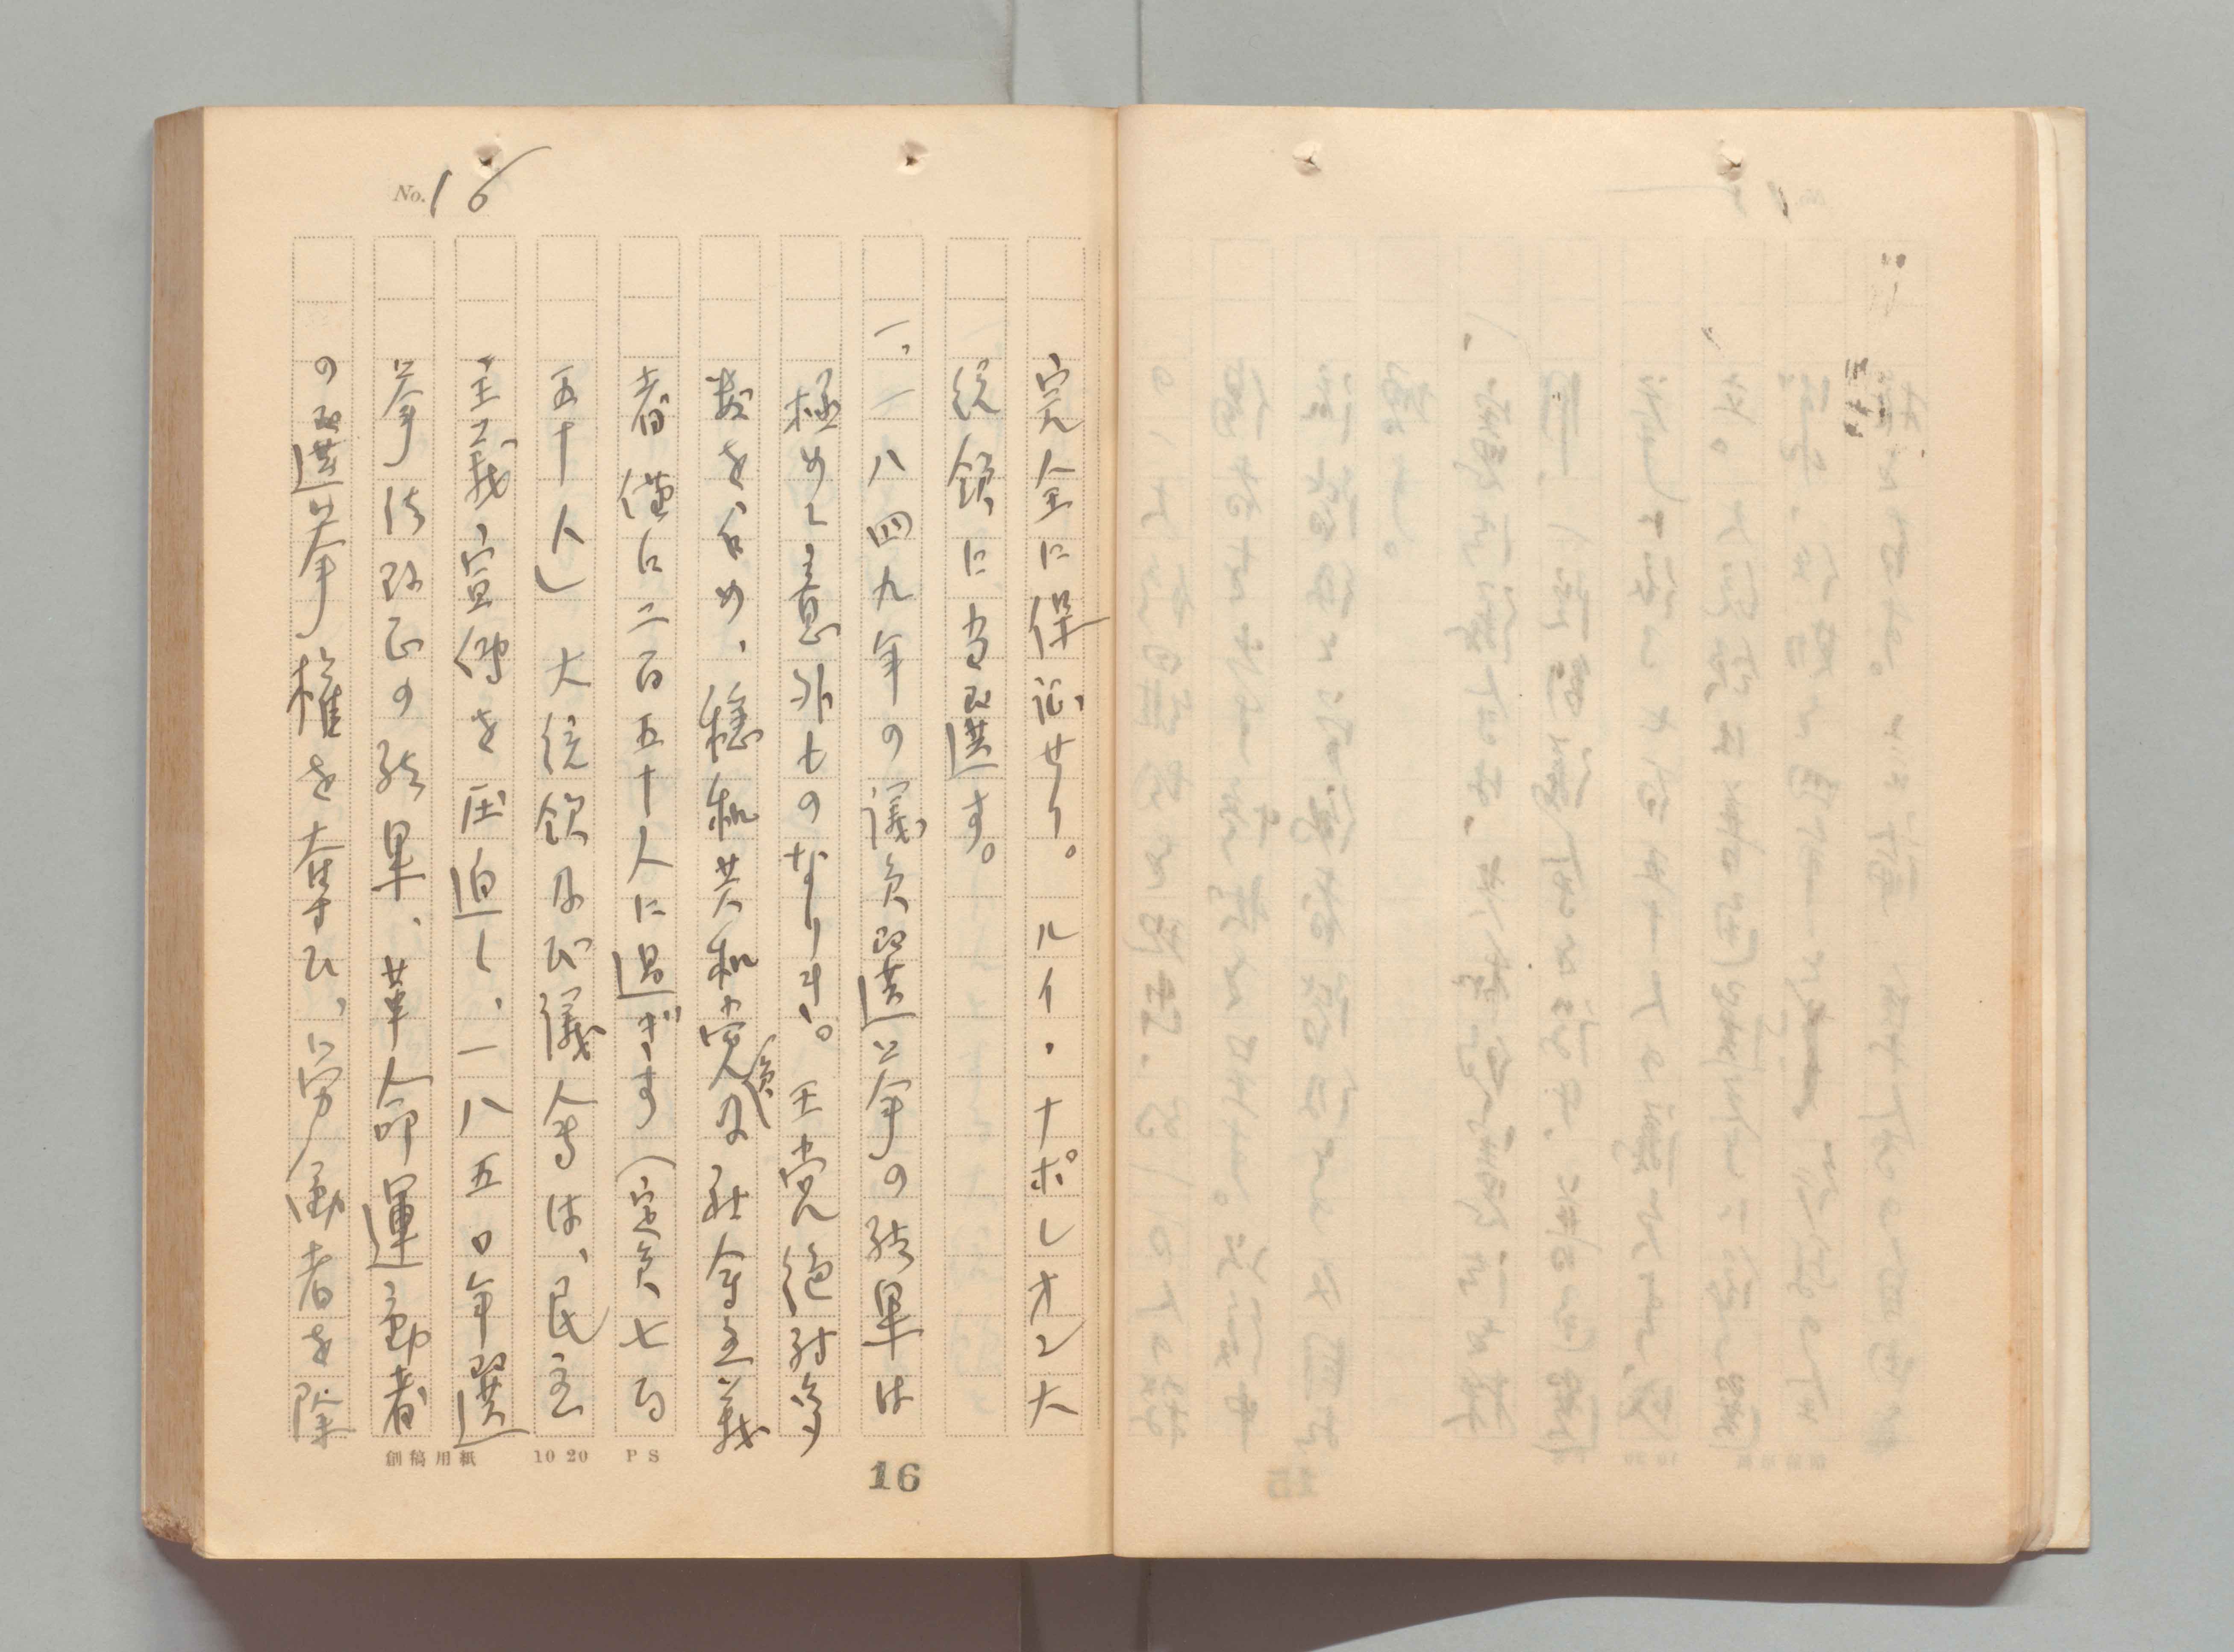 No. 16
完全に保証せり。ルイ・ナポレオン大
統領に当選す。
一、一八四九年の議員選挙の結果は
極めて意外ものなりき。王党絶対多
数を占め、穏和共和党員及社会主義
者僅に二百五十人に過ぎす（定員七百
五十人）大統領及び議会は、民主
主義、宣傳を圧迫し、一八五〇年選
挙法改正の結果、革命運動者
の選挙権を奪ひ、労働者を除
創稿用紙 10 20 PS
16